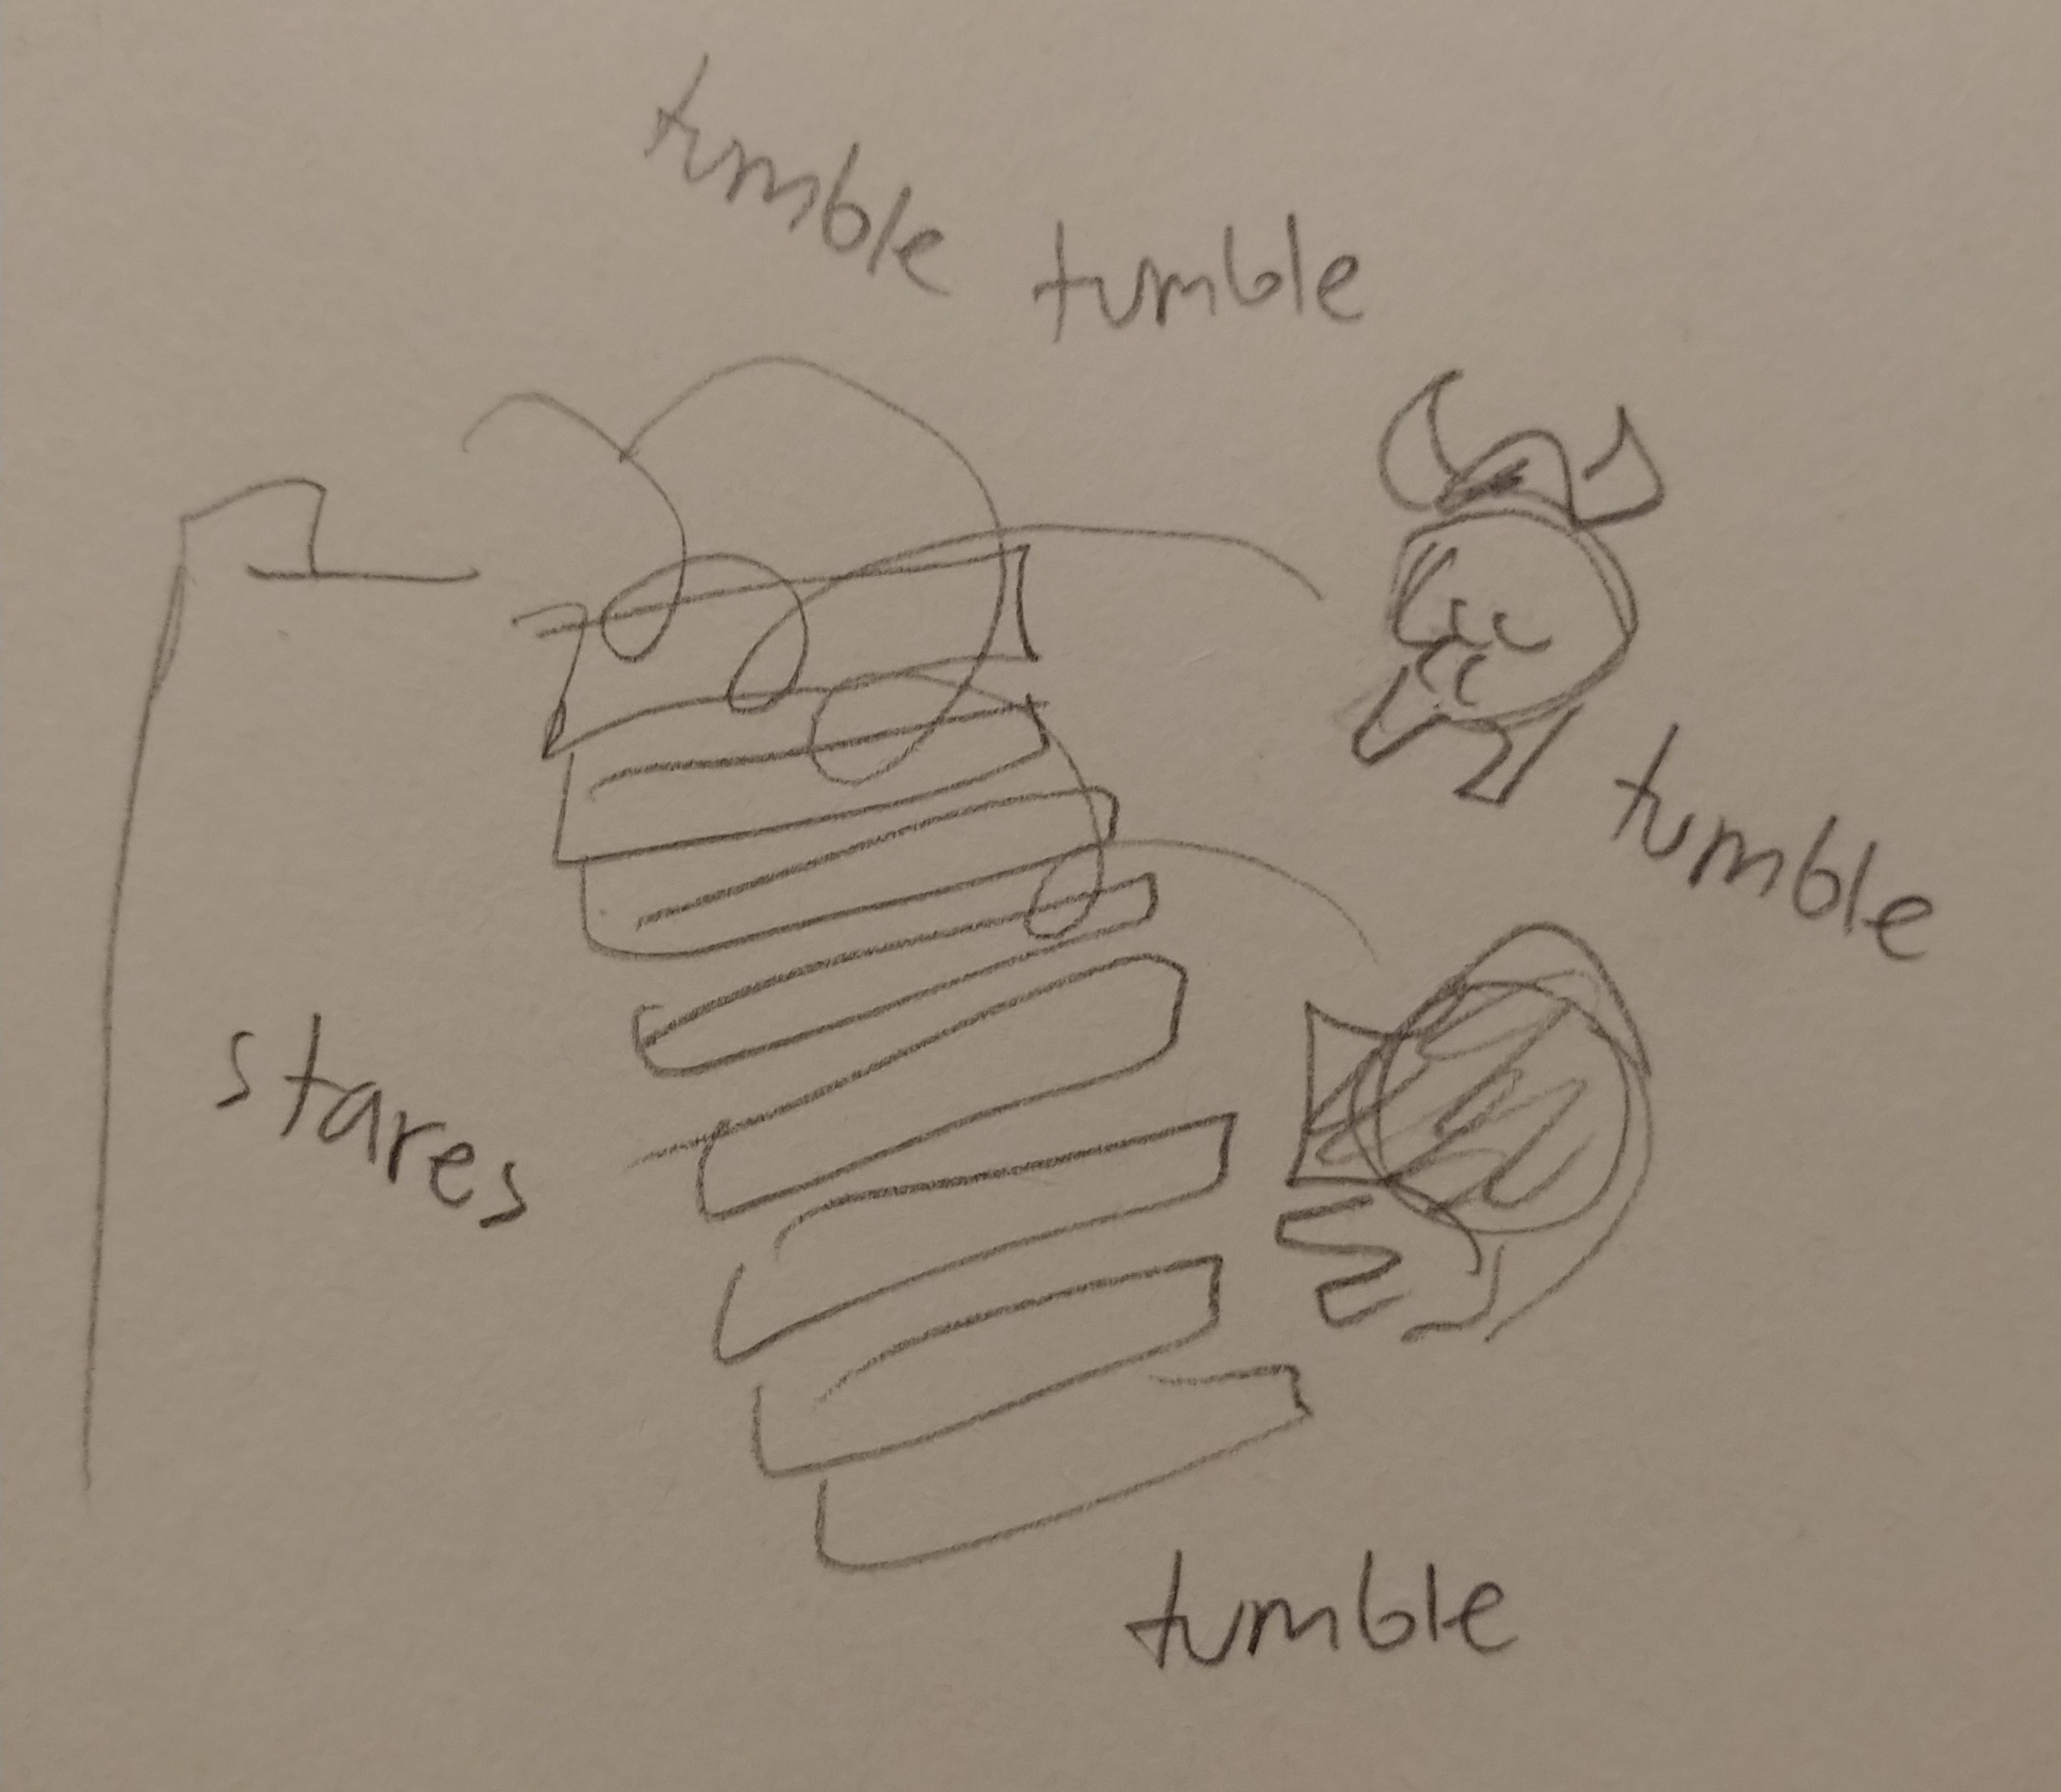 tumble
tumble
tumble
stares
tumble